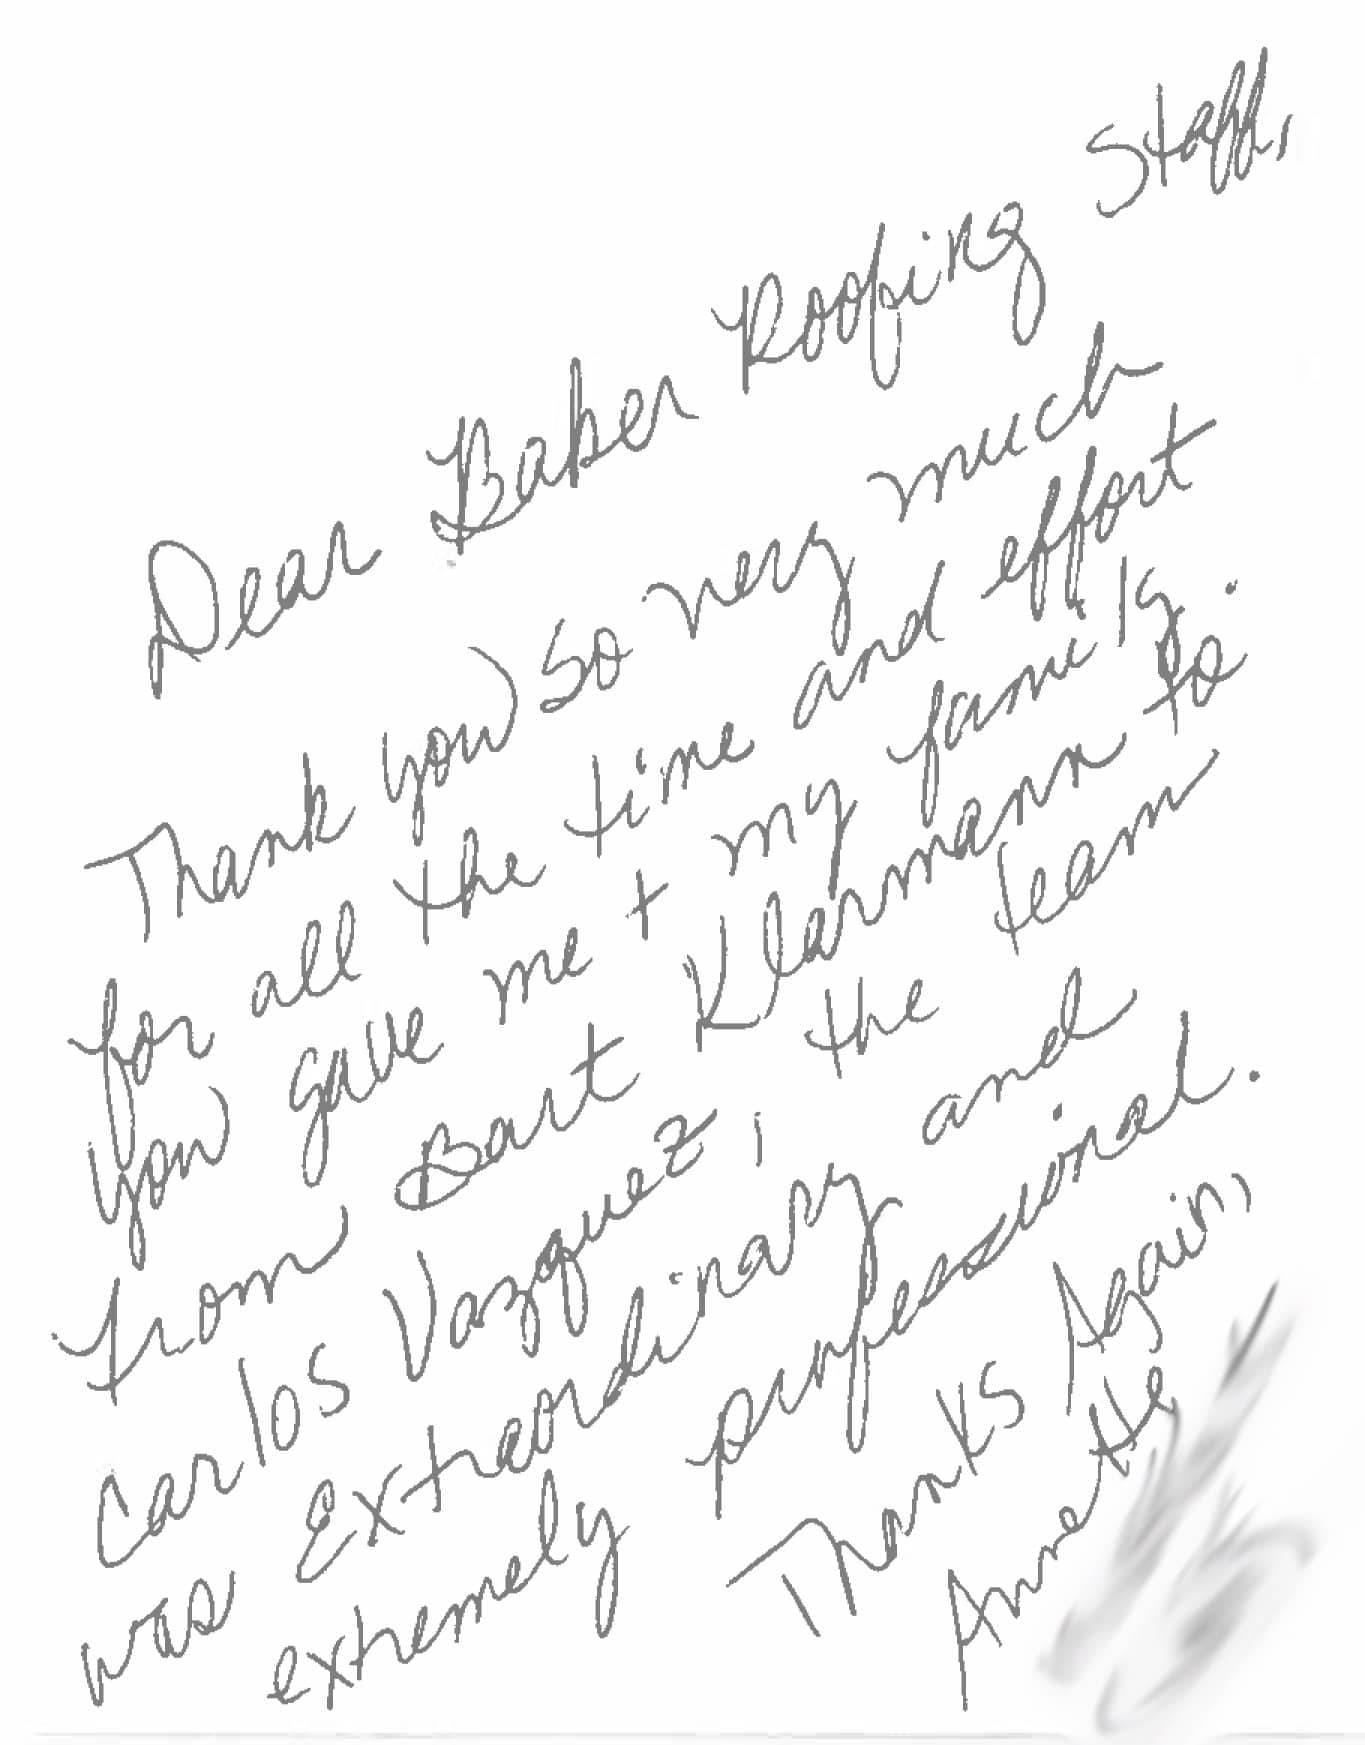 Dear Baker Roofing Staff,
Thank you so very much
for all the time and effort
you gave me + my family.
From Bart Klarmann to
Carlos Vazquez, the team
was Extraordinary and
extremely professional.
Thanks Again,
Annette